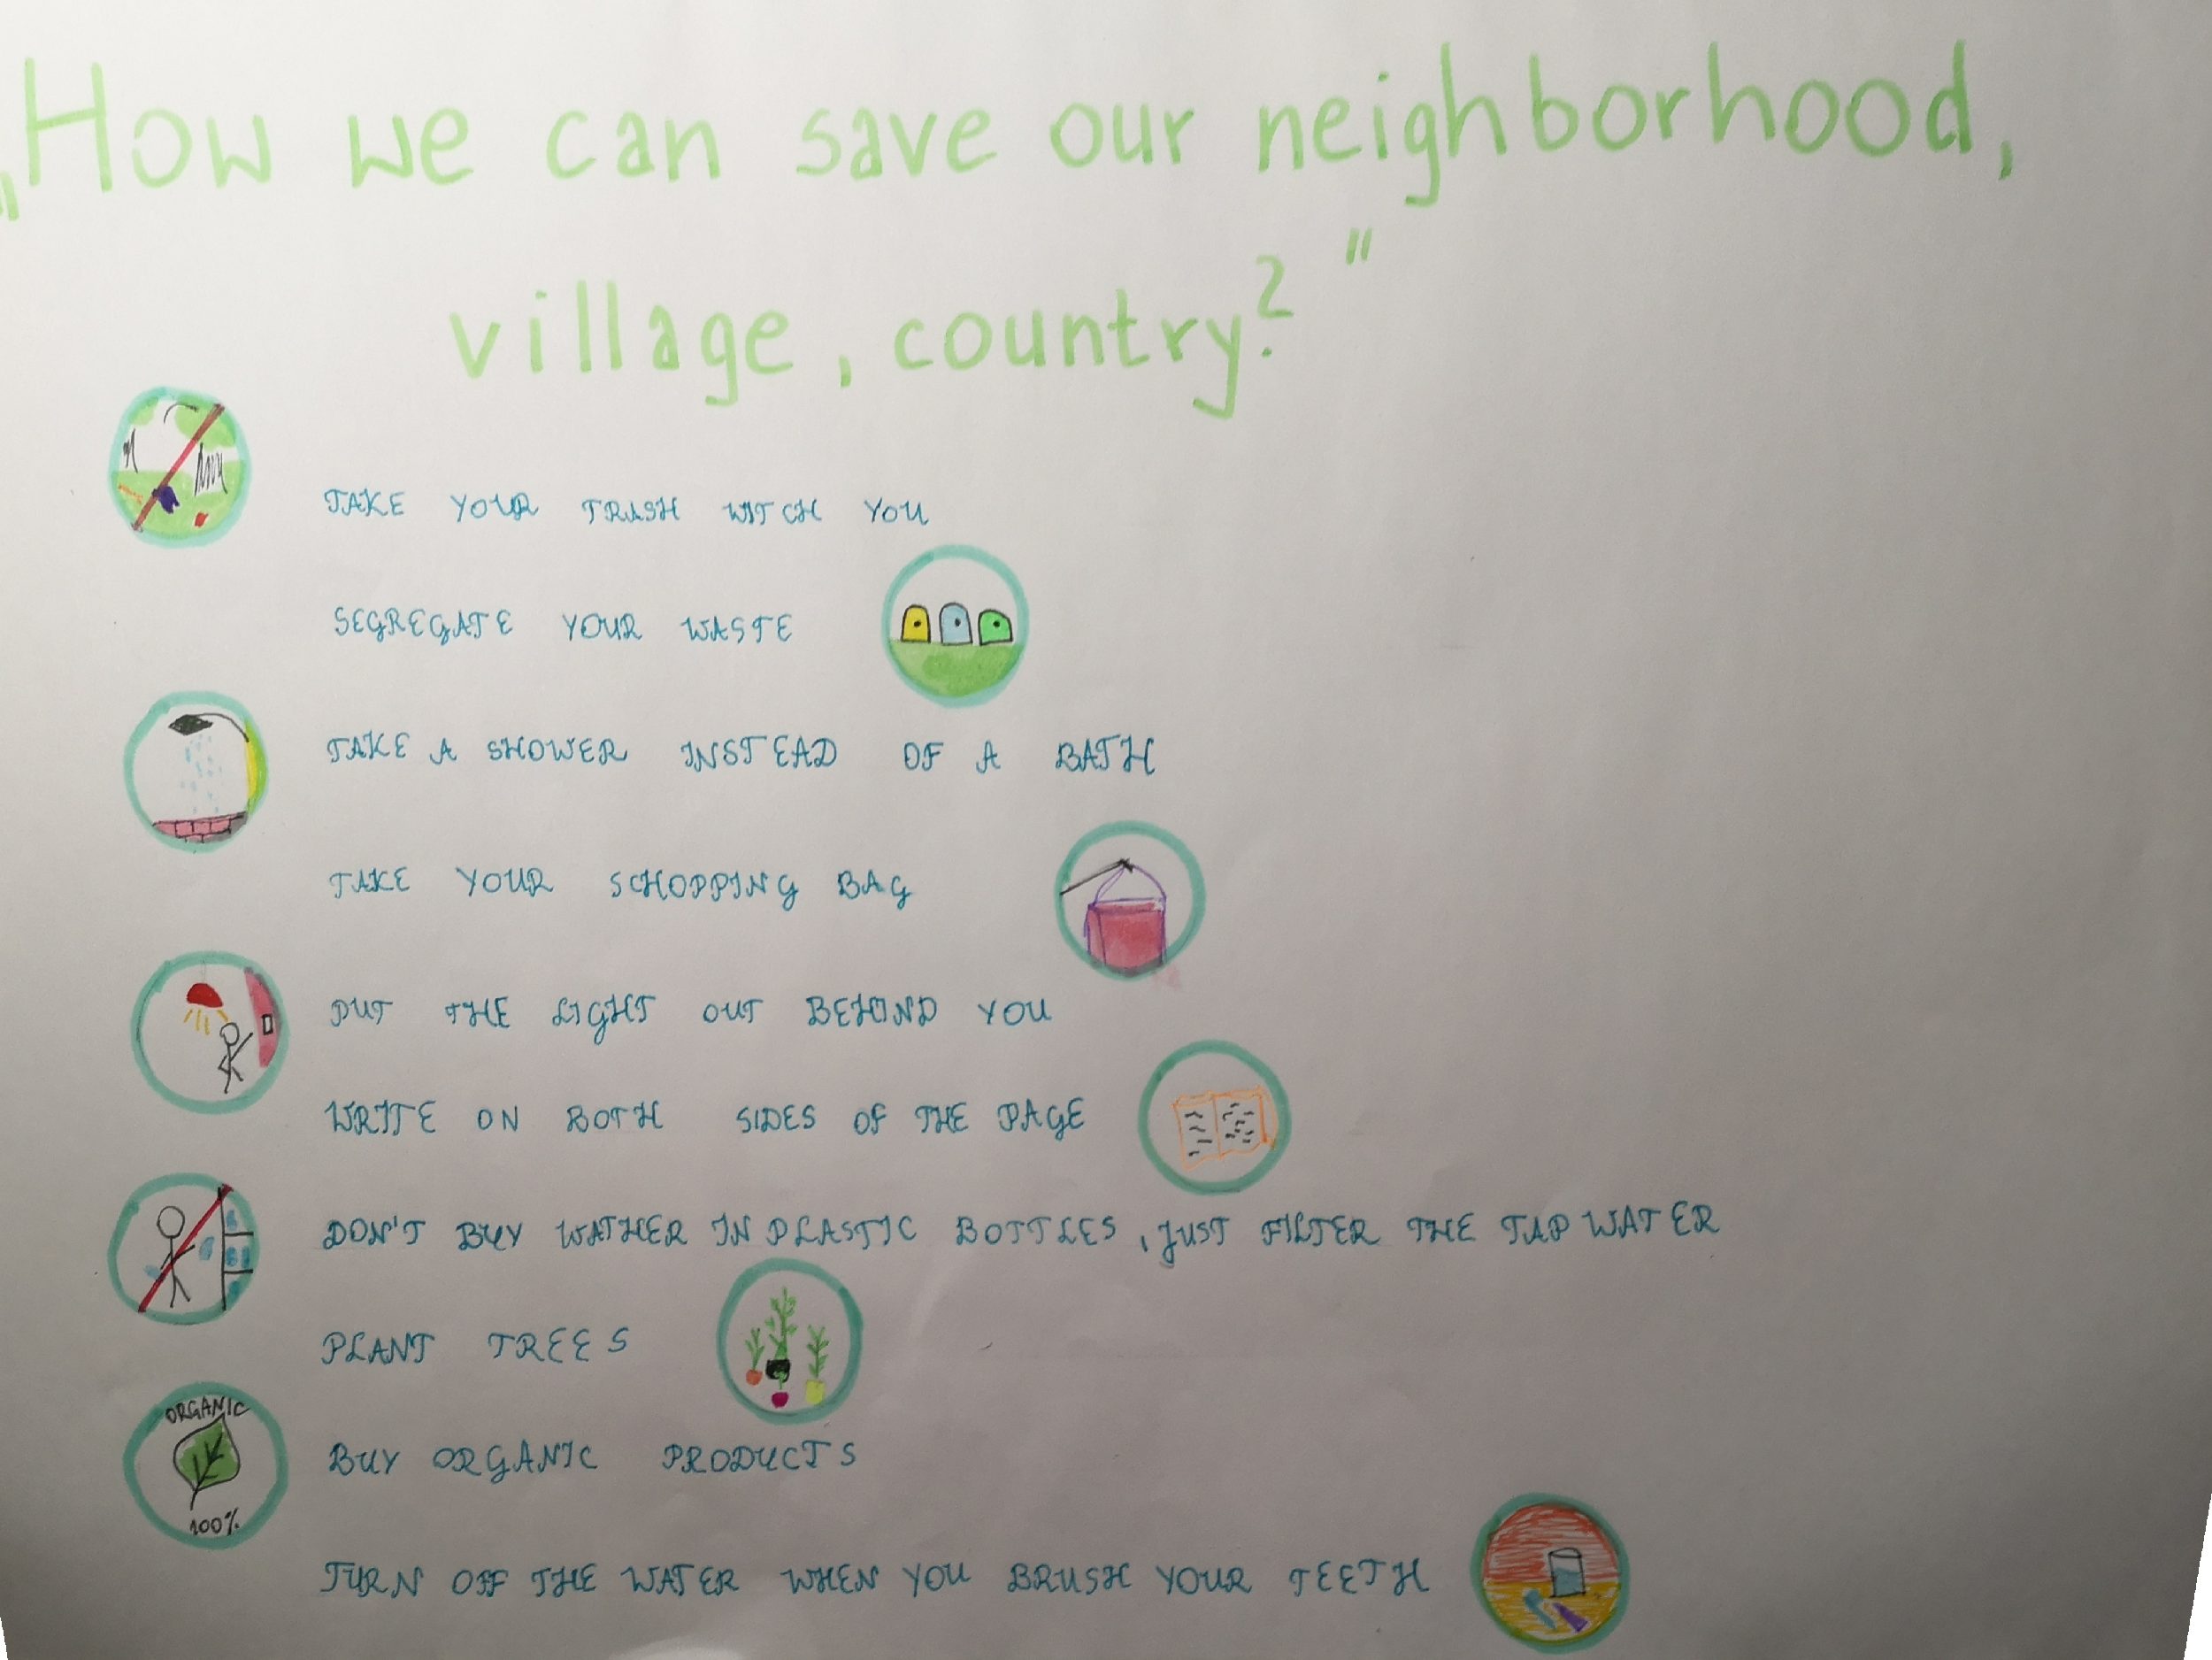 „How we can save our neighborhood,
village, country?"
TAKE YOUR TRASH WITCH YOU
SEGREGATE YOUR WASTE
TAKE A SHOWER INSTEAD OF A BATH
TAKE YOUR SCHOPPING BAG
PUT THE LIGHT OUT BEHIND YOU
WRITE ON BOTH SIDES OF THE PAGE
DON'T BUY WATHER IN PLASTIC BOTTLES, JUST FILTER THE TAP WATER
PLANT TREES
ORGANIC
100%
BUY ORGANIC PRODUCTS
TURN OFF THE WATER WHEN YOU BRUSH YOUR TEETH